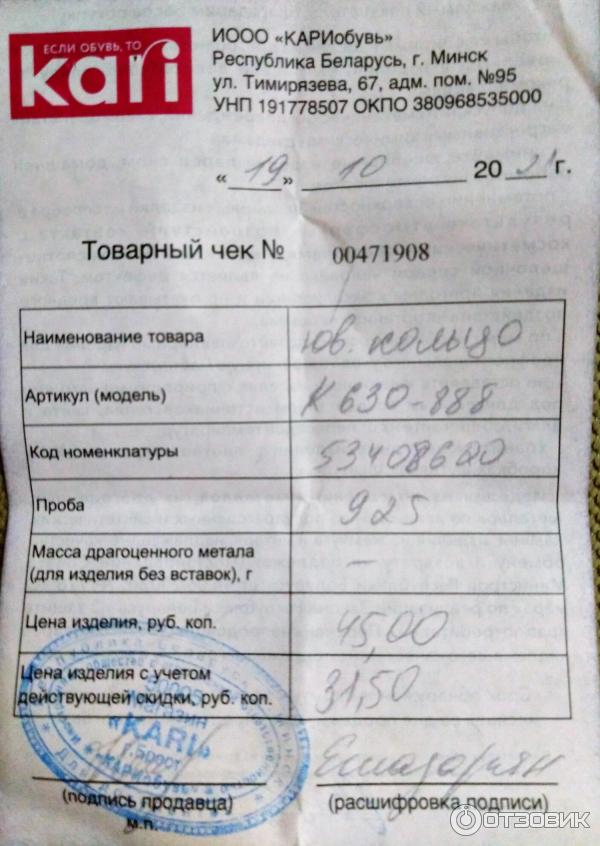 ЕСЛИ ОБУВЬ, ТО
kari
ИООО «КАРИобувь»
Республика Беларусь, г. Минск
ул. Тимирязева, 67, адм. пом. №95
УНП 191778507 ОКПО 380968535000
« 19 » 10 20 21 г.
Товарный чек № 00471908
Наименование товара юв. кольцо
Артикул (модель) К 630-888
Код номенклатуры 53408620
Проба 925
Масса драгоценного метала
(для изделия без вставок), г —
Цена изделия, руб. коп. 45,00
Цена изделия с учетом
действующей скидки, руб. коп. 31,50
Магазин
«KARI»
«КАРИобувь»
(подпись продавца)
(расшифровка подписи)
м.п.
ОТЗОВИК